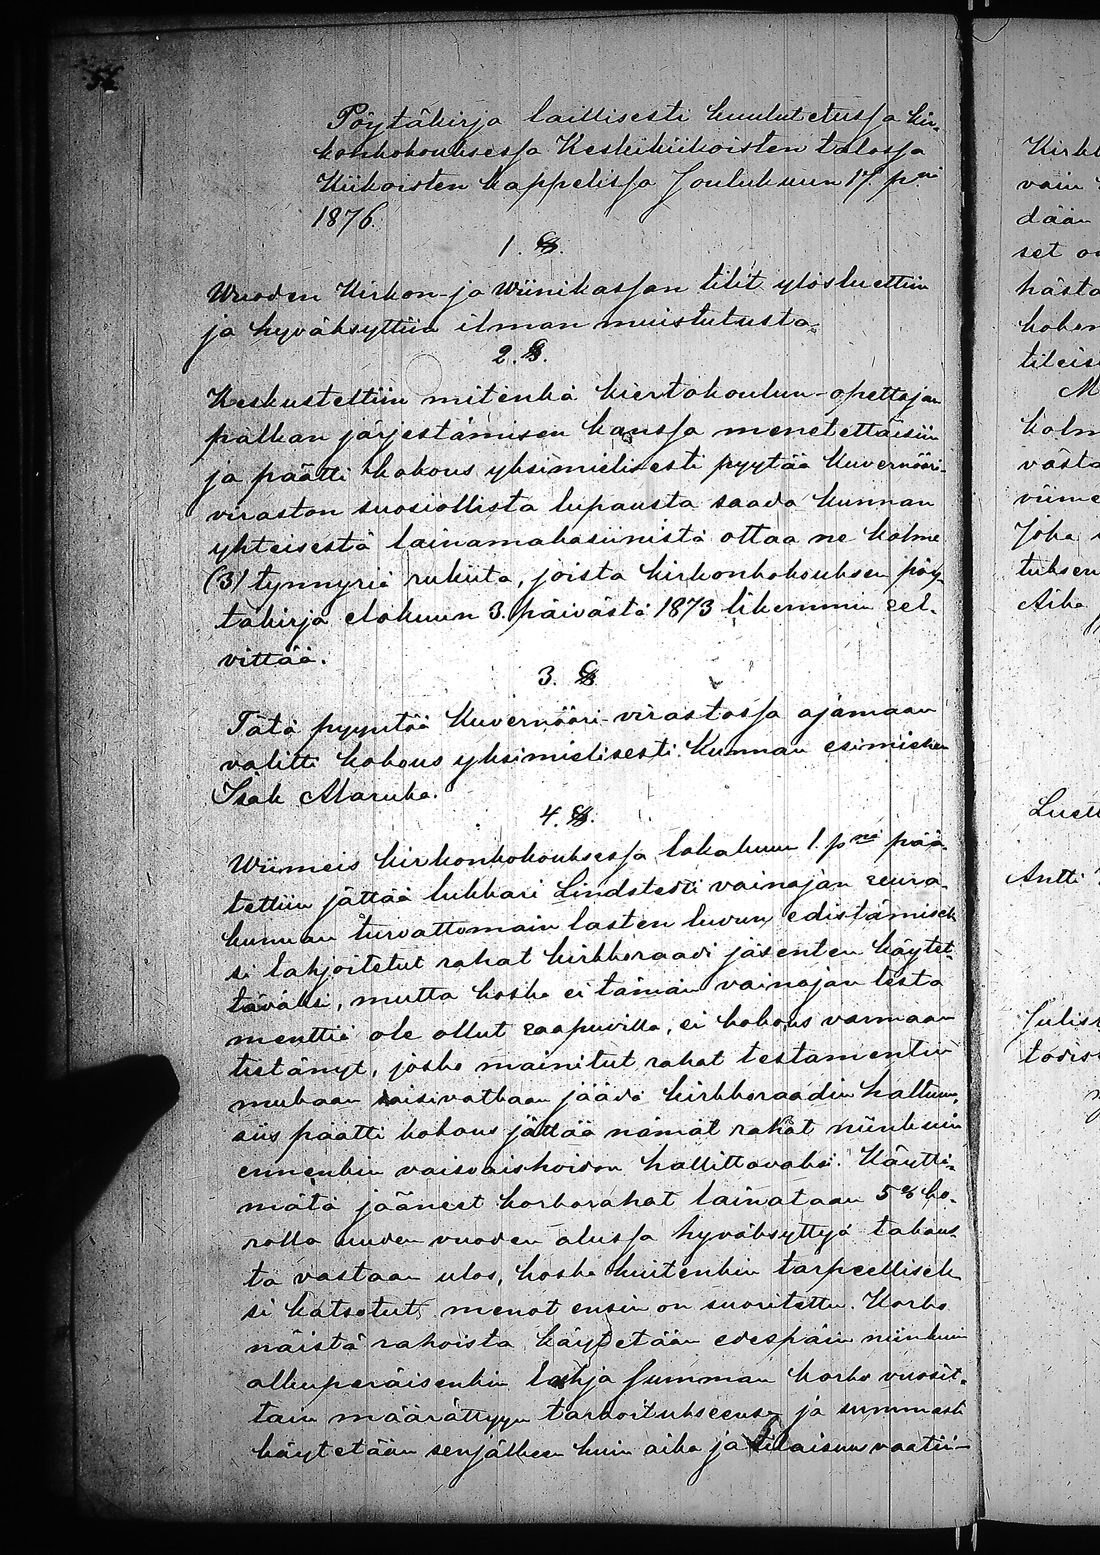 Pöytäkirja laillisesti kuulutetussa kir-
konkokouksessa Keskikiikoisten talossa
Kiikoisten kappelissa Joulukuun 17. p:nä
1876.
1. §.
Wuoden Kirkon- ja Wiinikassan tilit ylösluettiin
ja hyväksyttiin ilman muistutusta.
2. §.
Keskusteltiin mitenkä kiertokoulun-opettajan
palkan järjestämisen kanssa meneteltäisiin
ja päätti kokous yksimielisesti pyytää Kuvernööri-
viraston suosiollista lupausta saada kunnan
yhteisestä lainamakasiinista ottaa ne kolme
(3) tynnyriä rukiita, joista kirkonkokouksen pöy-
täkirja elokuun 3. päivästä 1873 likemmin sel-
vittää.
3. §
Tätä pyyntöä Kuvernööri-virastossa ajamaan
valitti kokous yksimielisesti Kunnan esimiehen
Isak Maruka.
4. §.
Wiimeis kirkonkokouksessa lokakuun 1. p:nä pää-
tettiin jättää lukkari Lindstedti vainajan seura-
kunnan turvattomain lasten luvun edistämisek-
si lahjoitetut rahat kirkkoraadi jäsenten käytet-
täväksi, mutta koska ei tämän vainajan testa
menttiä ole ollut saapuvilla, ei kokous varmaan
tietänyt, josko mainitut rahat testamentin
mukaan saisivatkaan jäädä kirkkoraadin haltuun,
siis päätti kokous jättää nämät rahat niinkuin
ennenkin vaivaishoidon hallittavaksi. Käyttä-
mätä jääneet korkorahat lainataan 5% ko-
rolla uuden vuoden alussa hyväksyttyä takaus-
ta vastaan ulos, koska kuitenkin tarpeellisek-
si katsotut menot ensin on suoritettu. Korko
näistä rahoista käytetään edespäin niinkuin
alkuperäisenkin lahja summan korko vuosit-
tain määrättyyn tarkoitukseensa ja summasti
käytetään senjälkeen kuin aika ja tilaisuus vaatii-